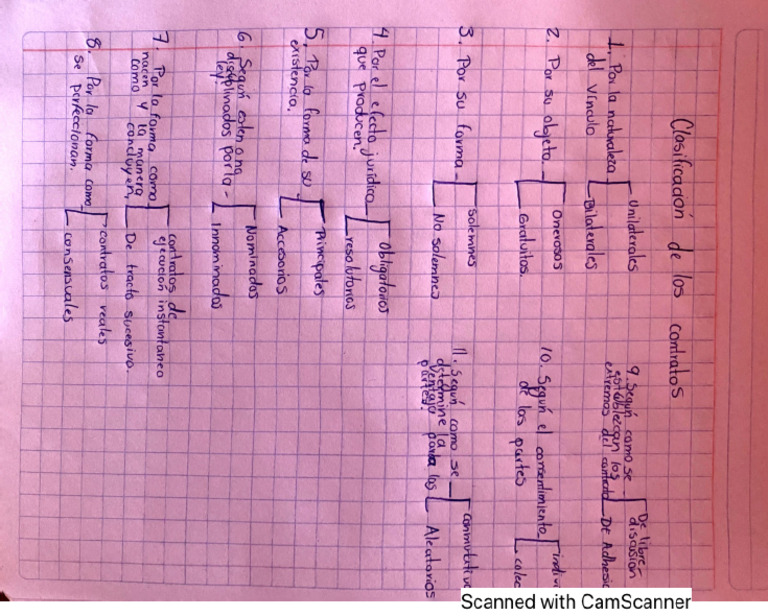 Clasificación de los contratos
1. Por la naturaleza
del vínculo
Unilaterales
Bilaterales
2. Por su objeto.
Onerosos
Gratuitos.
3. Por su forma
Solemnes
No solemnes
4. Por el efecto jurídico
que producen.
Obligatorios
resolutorios
5. Por la forma de su
existencia.
Principales
Accesorios
6. Según esten o no
disciplinados por la
ley
Nominados
Innominados
7. Por la forma como
nacen y la manera
como concluyen
contratos de
ejecución instantanea
De tracto sucesivo.
8. Por la forma como
se perfeccionan.
contratos reales
consensuales
9. Según como se
establezcan los
extremos del contrato
De libre
discusión
De Adhesió
10. Según el consentimiento
de las partes
indiv
colec
11. Según como se
determine la
ventaja para las
partes.
conmutativ
Aleatorios
Scanned with CamScanner